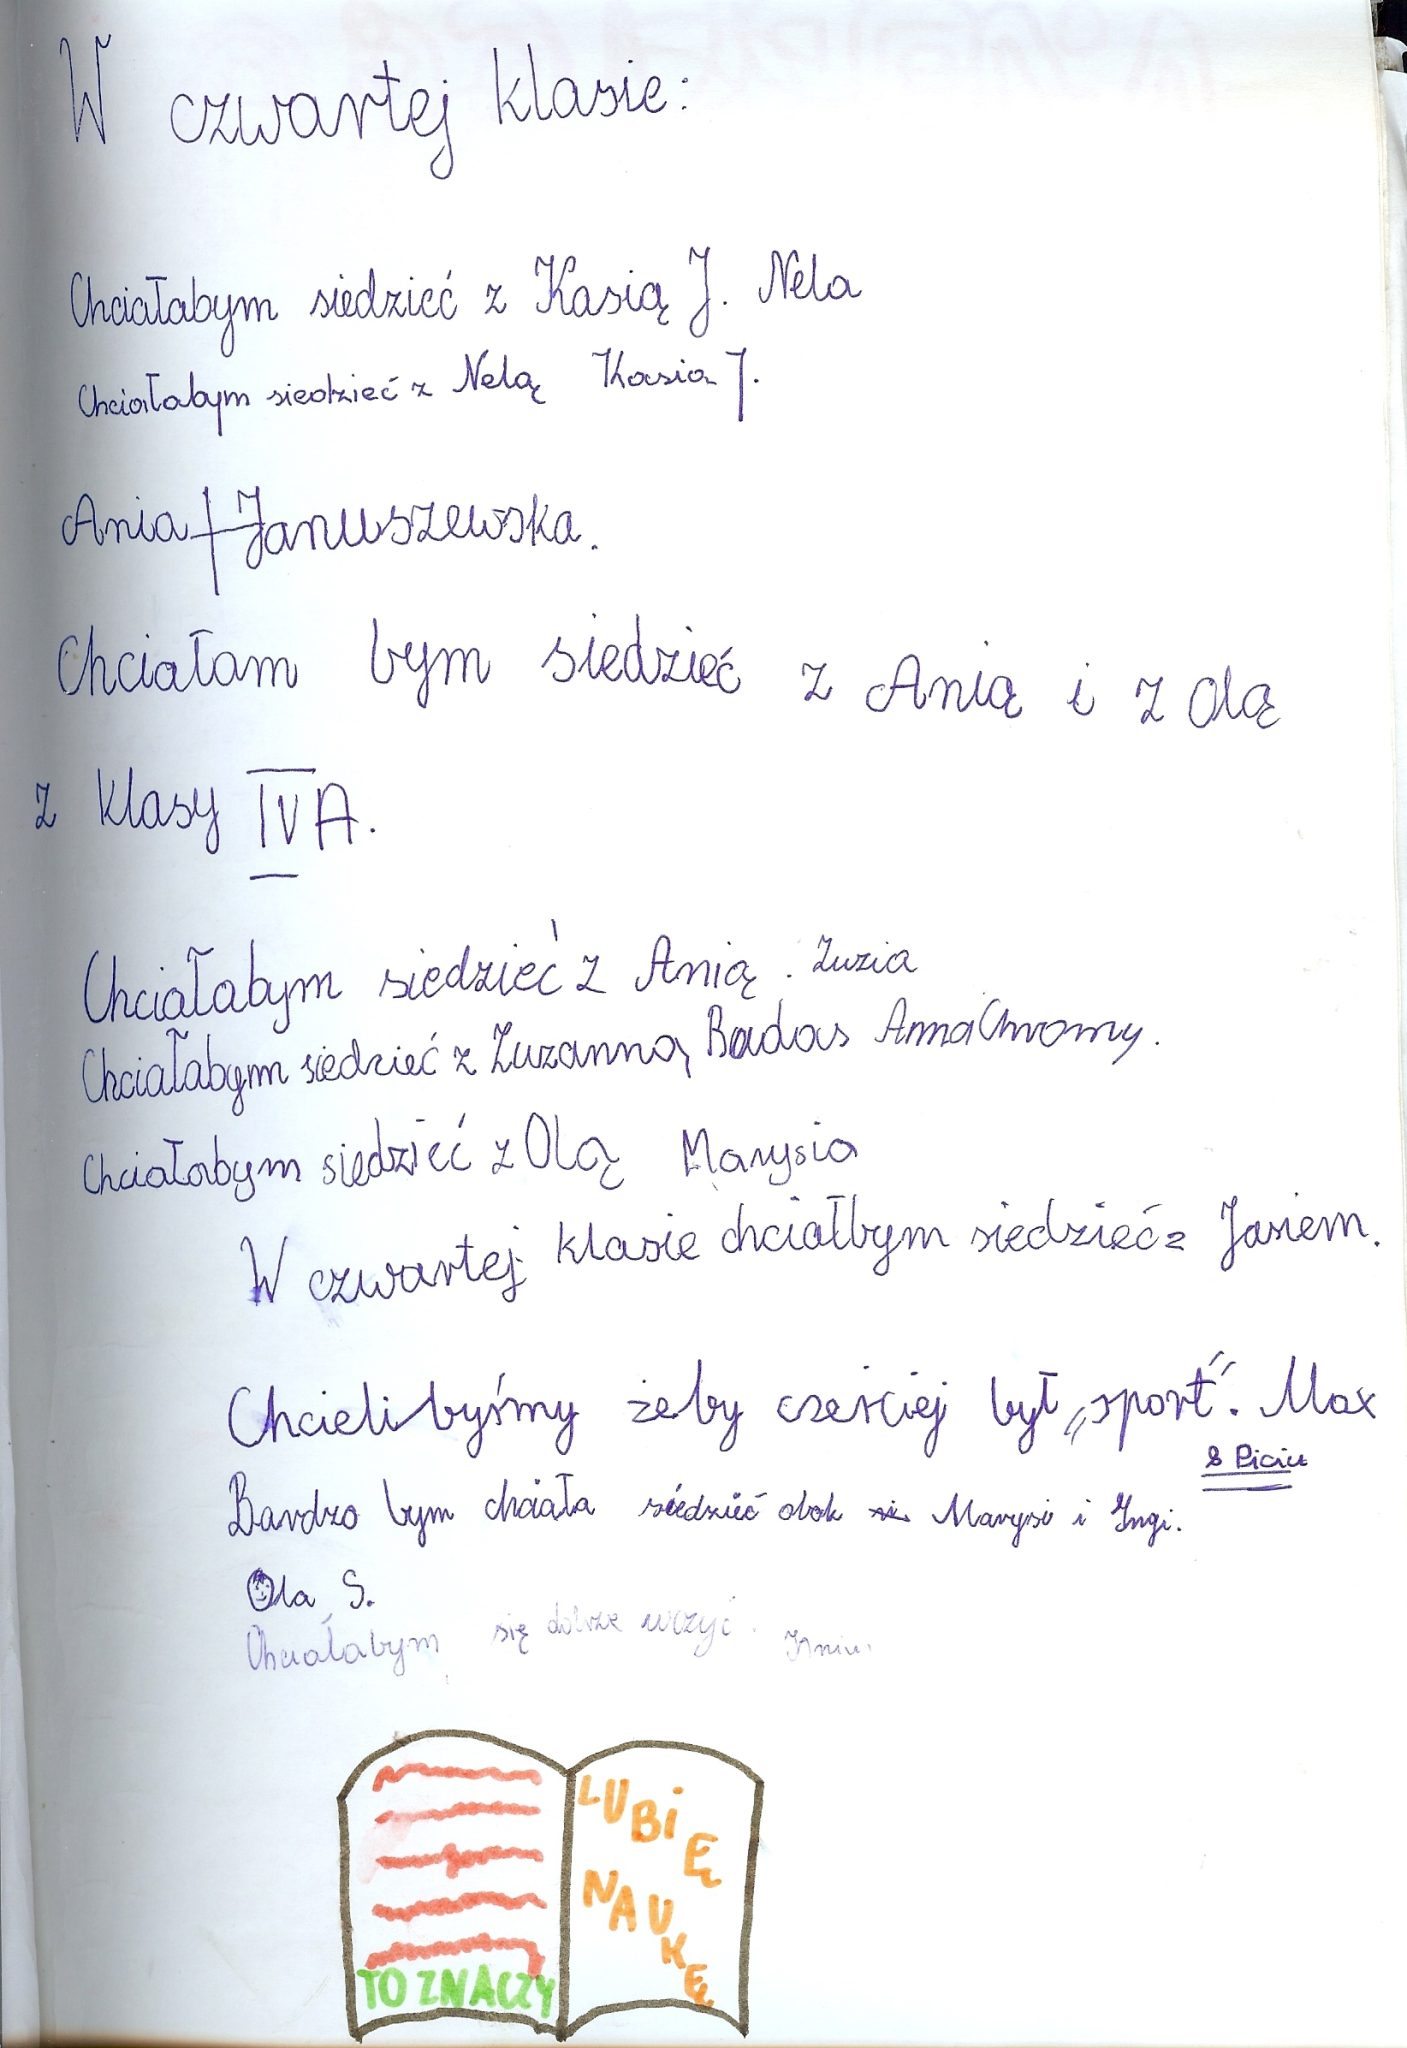 W czwartej klasie:
Chciałabym siedzieć z Kasią J. Nela
Chciałabym siedzieć z Nelą Kasia J.
Ania Januszewska.
Chciałam bym siedzieć z Anią i z Olą
z klasy IV A.
Chciałabym siedzieć z Anią. Zuzia
Chciałabym siedzieć z Zuzanną Badas Anna Chromy.
Chciałabym siedzieć z Olą Marysia
W czwartej klasie chciałbym siedzieć z Jasiem.
Chcielibyśmy żeby cześciej był „sport”. Max
& Piciu
Bardzo bym chciała siedzieć obok Marysi i Ingi.
Ola S.
Chciałabym się dobrze uczyć.
TO ZNACZY
LUBIĘ
NAUKĘ